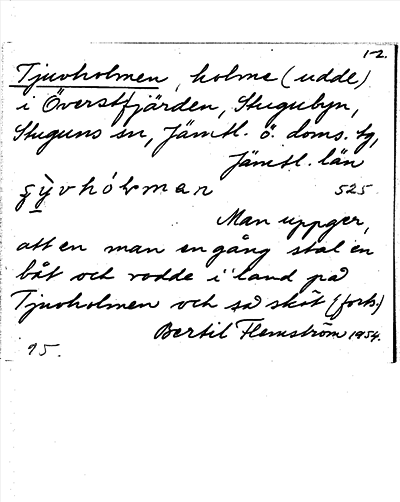 1-2.
Tjuvholmen, holme (udde)
i Överstfjärden, Stugubyn,
Stuguns sn, Jämtl. ö. doms. tg,
Jämtl. län
525
Man uppger,
att en man en gång stal en
båt och rodde i land på
Tjuvholmen och så sköt (forts.)
Bertil Flemström 1954.
15.